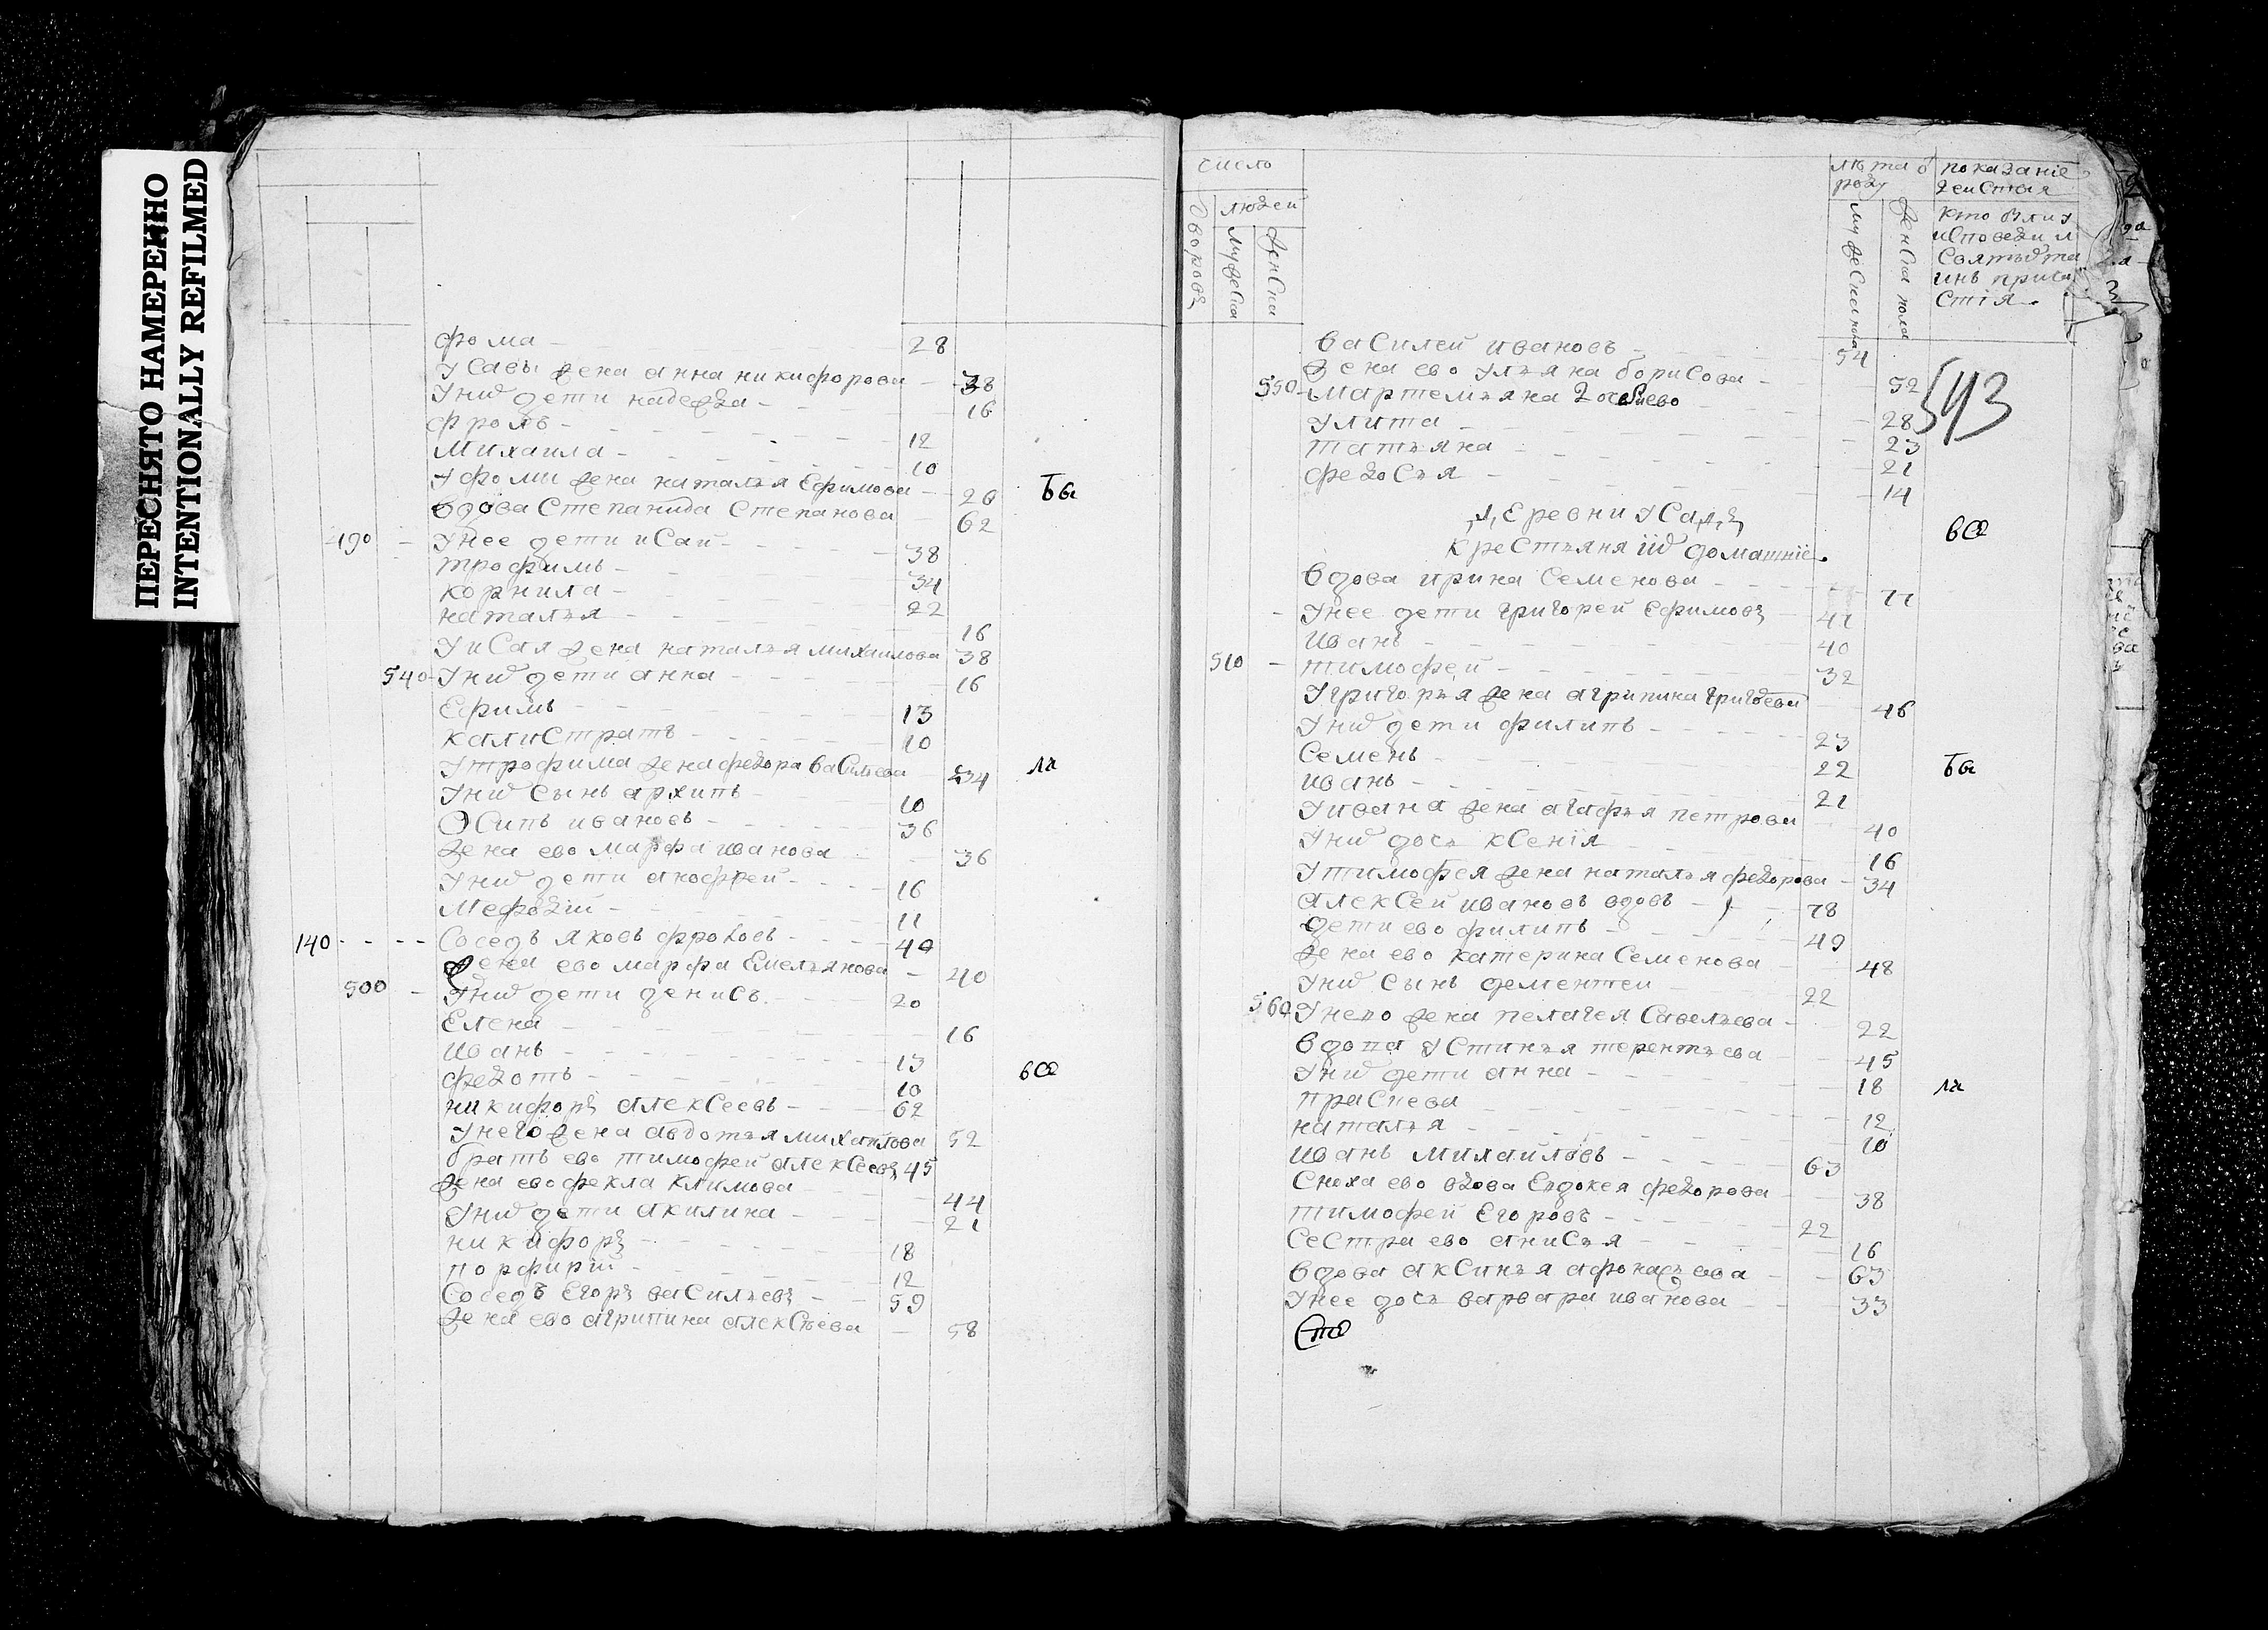 ПЕРЕСНЯТО НАМЕРЕННО
INTENTIONALLY REFILMED
фома 28
У Савы жена анна никифорова 38
У них дети надежа 16
фролъ 12
Михаила 10
У фомы жена наталья Ефимова 26 бы
вдова Степанида Степанова 62
490 У нее дети иСаи 38
трофимъ 34
корнила 22
наталья 16
У иСая жена наталья михаилова 38
540 У них дети анна 16
Ефимъ 13
калиСтратъ 10
У трофима жена федора ваСильева 34 ли
У них Сынъ архипъ 10
ОСипъ ивановъ 36
жена ево марфа иванова 36
У них дети анофреи 16
Мефодіи 11
140 Соседъ яковъ фроловъ 40
жена ево марфа Емельянова 40
500 У них дети дениСъ 20
Елена 16
иванъ 13
федотъ 10 все
никифоръ алекСеевъ 62
У него жена авдотья михаилова 52
братъ ево тимофеи алекСеевъ 45
жена ево фекла климова 44
У них дети акилина 21
никифоръ 18
порфиріи 12
Соседъ Егоръ ваСильевъ 59
жена ево агрипина алекСеева 58
число
дворовъ
людей
мужеска
женска
лета о роду
мужеска пола
женска пола
показаніе действия
кто был у исповеди и Святых таинъ причастия
593
ваСилеи ивановъ 54
жена ево Ульяна бориСова 52
550 Мартемьяна
Улита 28
татьяна 23
федоСья 21
14
деревни УСад
креСтьяня их домашніе все
вдова ирина Семенова 77
У нее дети григореи Ефимовъ 47
иванъ 40
510 тимофеи 32
У григорья жена агрипина григоева 46
У них дети филипъ 23
Семенъ 22 бы
иванъ 21
У ивана жена агафья петрова 40
У них дочь кСенія 16
У тимофея жена наталья федорова 34
алекСеи ивановъ вдовъ 78
дети ево филипъ 49
жена ево катерина Семенова 48
У них Сынъ дементеи 22
560 У нево жена пелагея Савельева 22
вдова УСтинья терентьева 45
У них дети анна 18 ли
праСкева 12
наталья 10
иванъ михайловъ 63
Сноха ево вдова Евдокея федорова 38
тимофеи Егоровъ 22
СеСтра ево аниСья 16
вдова акСинья афонасьева 63
У нее дочь варвара иванова 33